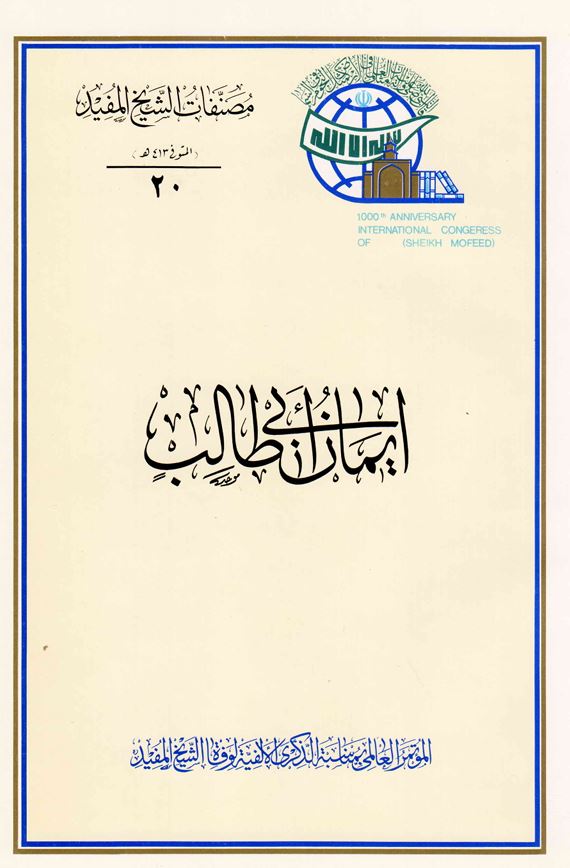 مصنفات الشيخ المفيد
(المتوفى ٤١٣ هـ)
٢٠
لا إله إلا الله
1000th ANNIVERSARY
INTERNATIONAL CONGERESS
OF (SHEIKH MOFEED)
ايمان أبي طالب
المؤتمر العالمي بمناسبة الذكرى الألفية لوفاة الشيخ المفيد